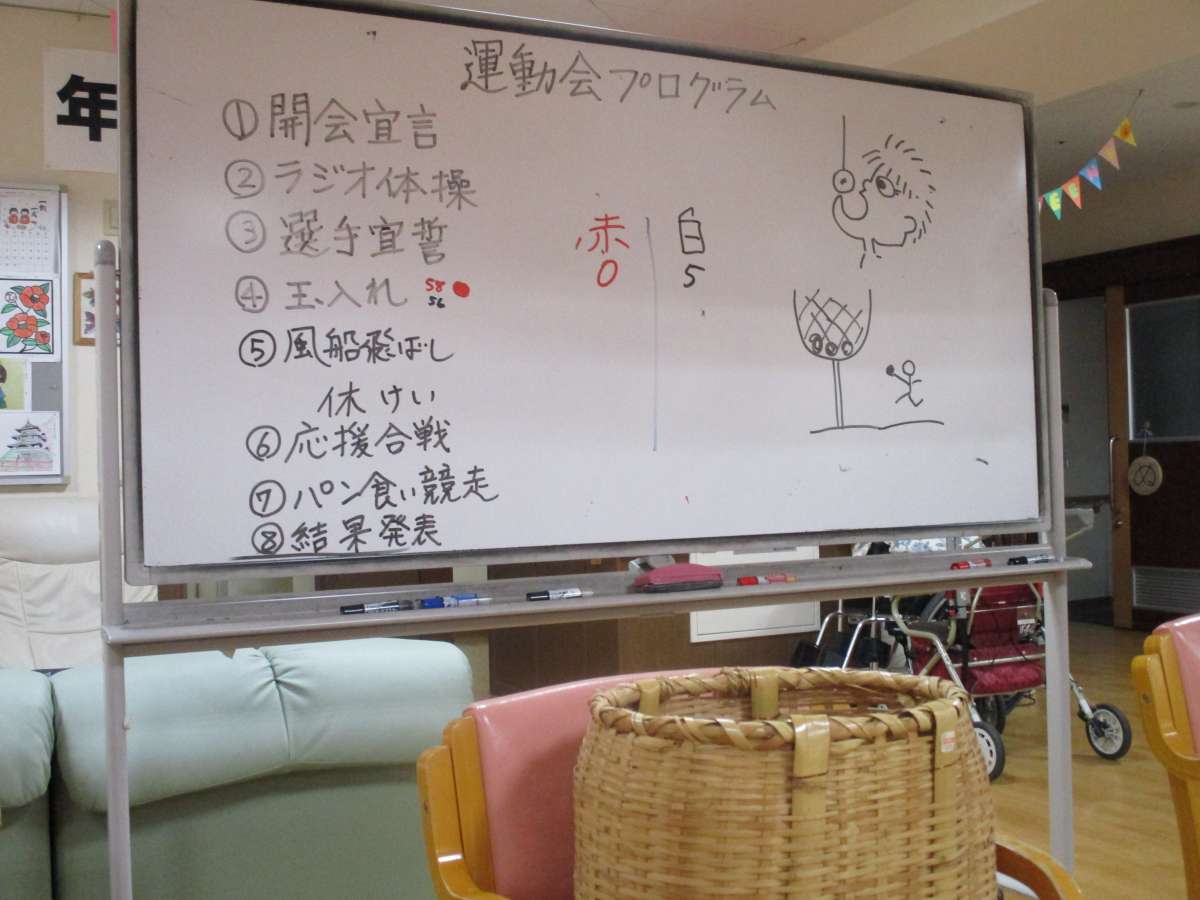 年
運動会プログラム
①開会宣言
②ラジオ体操
③選手宣誓
④玉入れ 58
56
⑤風船飛ばし
休けい
⑥応援合戦
⑦パン食い競走
⑧結果発表
赤 白
0 5